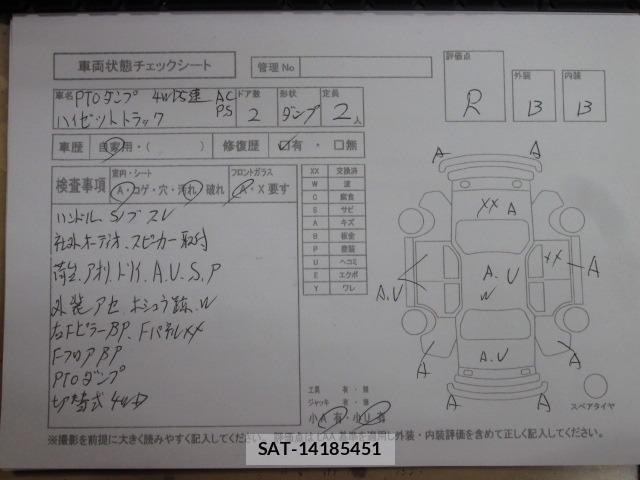 車両状態チェックシート
管理No
評価点
R
外装
B
内装
B
車名 PTOダンプ 4WD5速 AC PS
ハイゼットトラック
ドア数
2
形状
ダンプ
定員
2人
車歴 自家用・( )
修復歴 有・無
検査事項
室内・シート
A・コゲ・穴・汚れ・破れ
フロントガラス
A・X要す
ハンドル スレ
社外オーディオ、スピーカー取付
荷台、アオリ、トリイ、A、U、S、P
外装、アセ、ホシュウ跡、W
右FピラーBP、FパネルXX
FフロアBP
PTOダンプ
切替式4WD
XX 交換済
W 波
C 腐食
S サビ
A キズ
B 板金
P 塗装
U ヘコミ
E エクボ
Y ワレ
工具 有・無
ジャッキ 有・無
小A有・小U有
A
A
XX A
XX
A
A.U
A.U
W
A.U
A
A
A
A
スペアタイヤ
※撮影を前提に大きく読みやすく記入してください。評価点はJAAA基準を適用し外装・内装評価を含めて正しく記入してください。
SAT-14185451